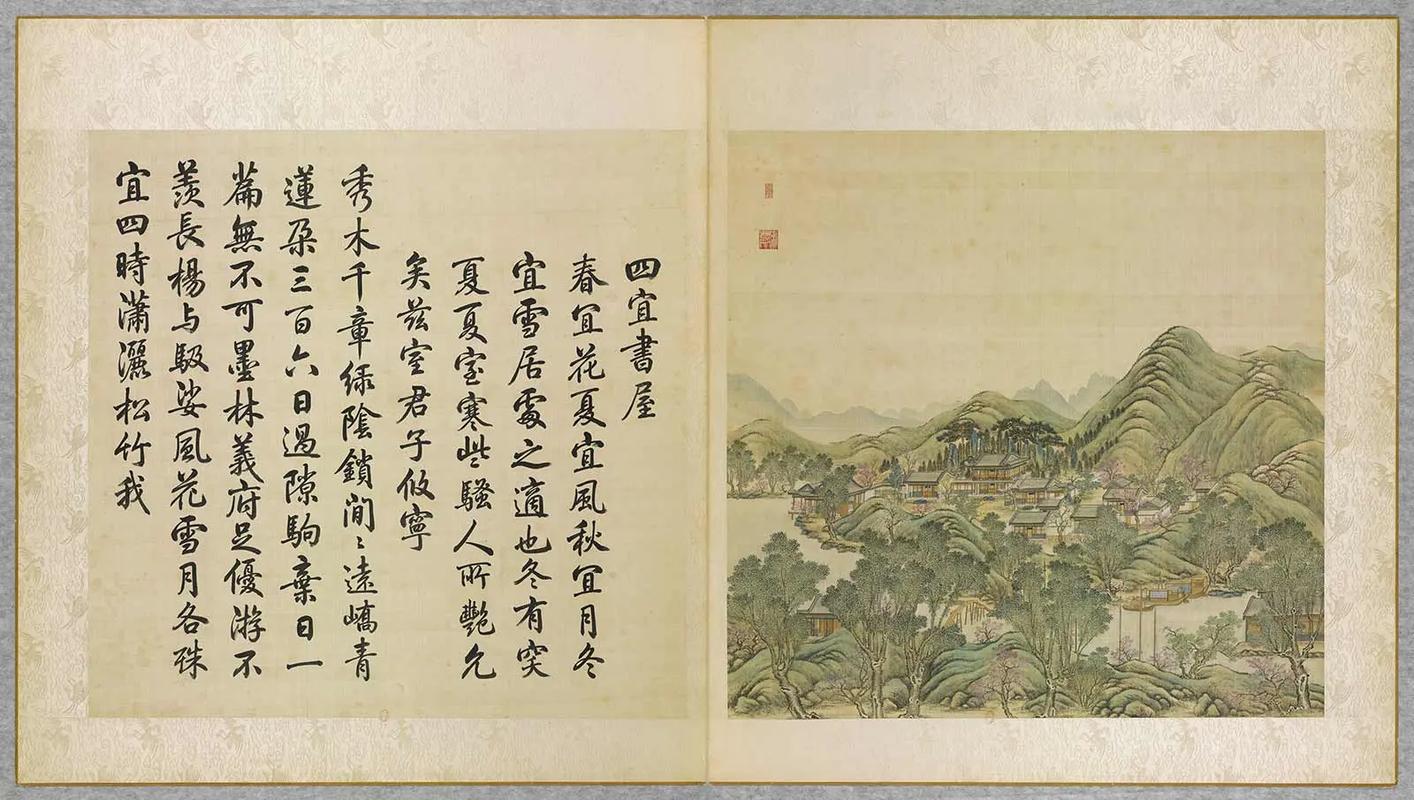 四宜書屋
春宜花夏宜風秋宜月冬
宜雪居處之適也冬有突
夏夏室寒些騷人所艷允
矣茲室君子攸寧
秀木千章綠陰鎖間間遠嶠青
蓮朵三百六日過隙駒棄日一
篇無不可墨林義府足優游不
羨長楊与馺娑風花雪月各殊
宜四時瀟灑松竹我